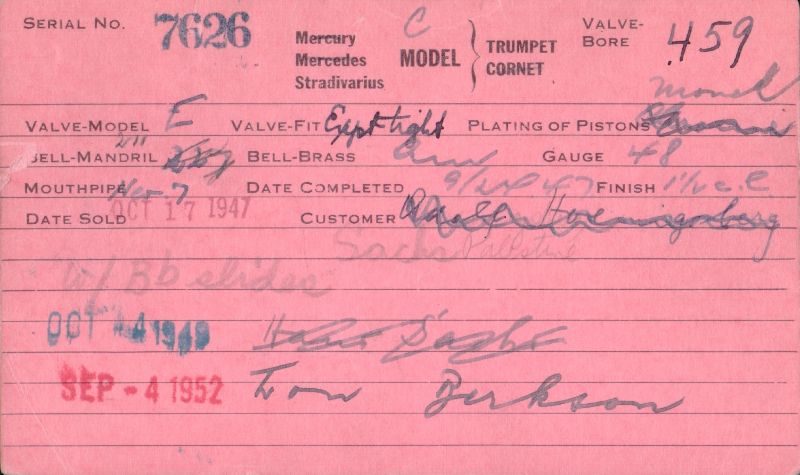 SERIAL NO. 7626 Mercury Mercedes Stradivarius C MODEL } TRUMPET CORNET VALVE-BORE .459
monel
VALVE-MODEL E VALVE-FIT Expt tight PLATING OF PISTONS
BELL-MANDRIL BELL-BRASS GAUGE 48
MOUTHPIPE No 7 DATE COMPLETED 9/24 47 FINISH
DATE SOLD OCT 17 1947 CUSTOMER
Sachs Palestine
w/ Bb slides
OCT 14 1949 Sachs
SEP - 4 1952 Don Berkson